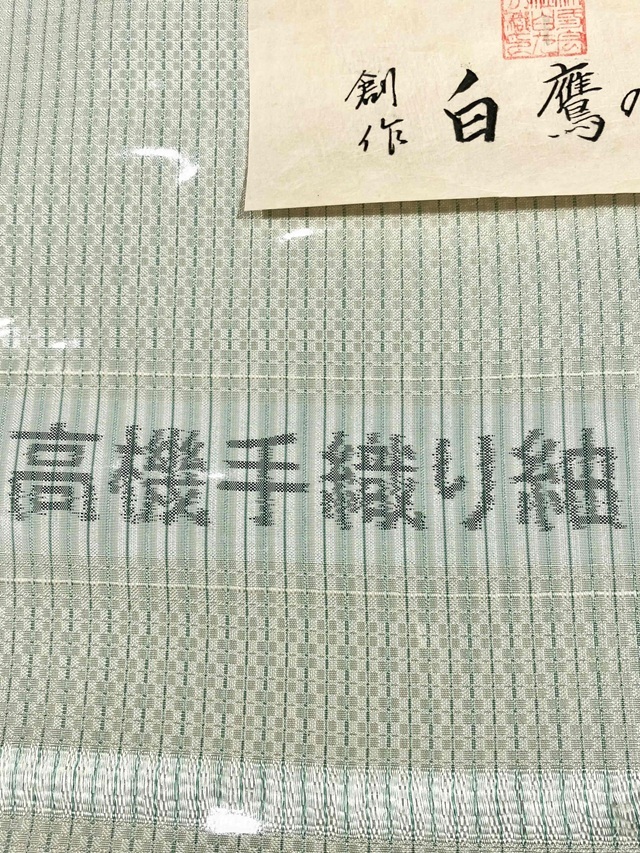 創作
白鷹の
高機手織り紬